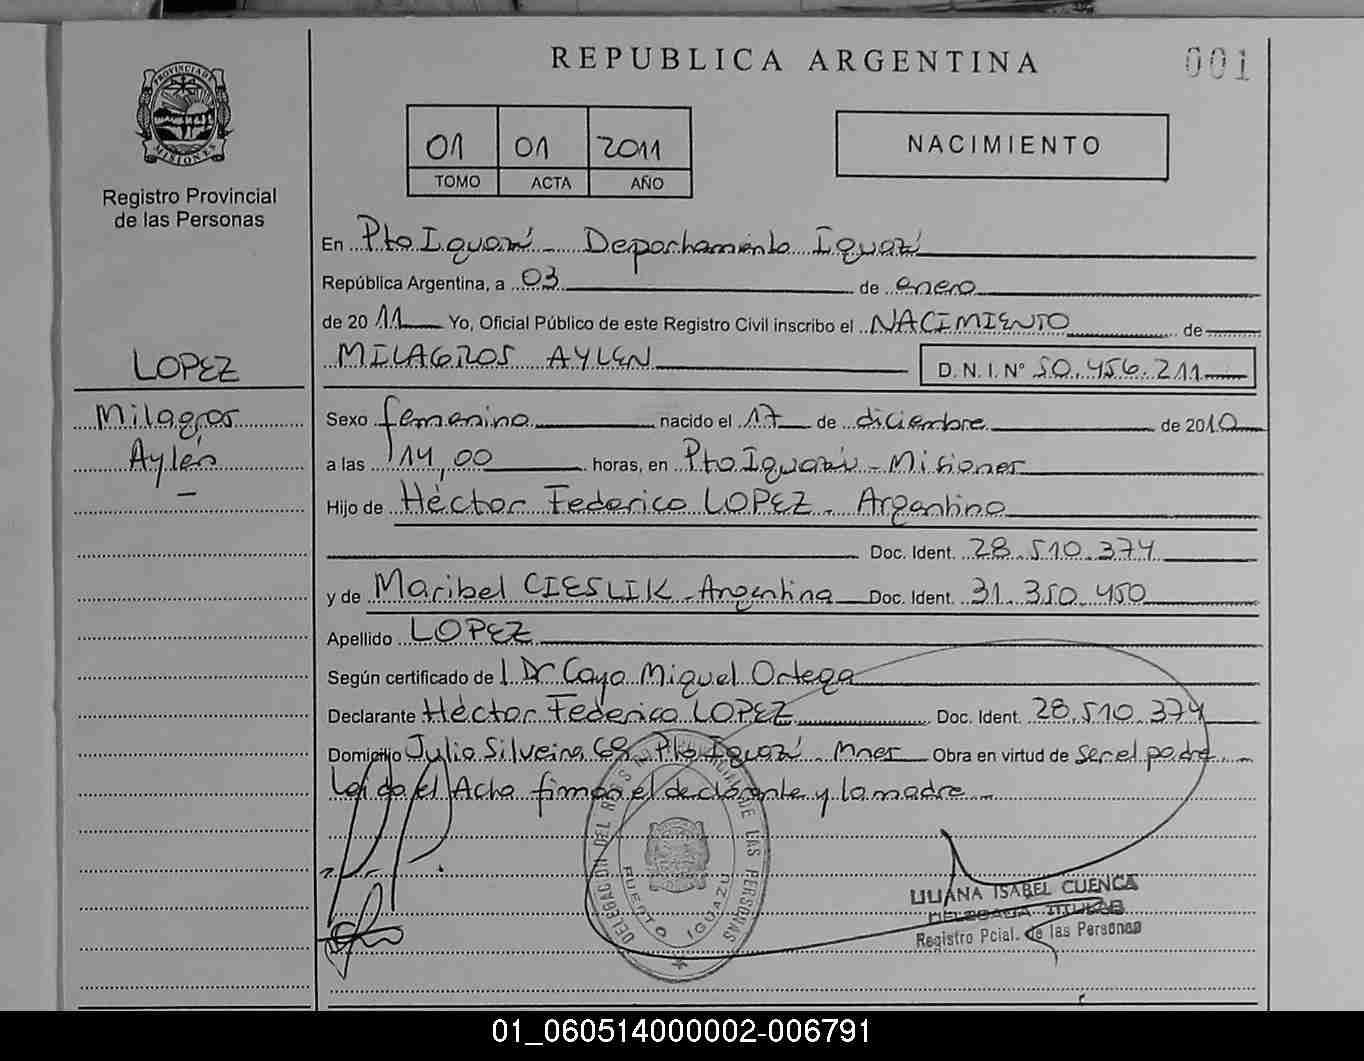 REPUBLICA ARGENTINA
001
PROVINCIA DE
MISIONES
Registro Provincial
de las Personas
01 01 2011
TOMO ACTA AÑO
NACIMIENTO
En Pto Iguazú - Departamento Iguazú
República Argentina, a 03 de enero
de 2011 Yo, Oficial Público de este Registro Civil inscribo el NACIMIENTO de
MILAGROS AYLEN D. N. I. Nº 50.456.211
LOPEZ
Milagros
Aylén
Sexo femenino nacido el 17 de diciembre de 2010
a las 14,00 horas, en Pto Iguazú - Misiones
Hijo de Héctor Federico LOPEZ - Argentino
Doc. Ident. 28.510.374
y de Maribel CIESLIK - Argentina Doc. Ident. 31.350.450
Apellido LOPEZ
Según certificado de Dr Cayo Miguel Ortega
Declarante Héctor Federico LOPEZ Doc. Ident. 28.510.374
Domicilio Julio Silveira 68 Pto Iguazú - Mnes Obra en virtud de ser el padre
Leída el Acta firman el declarante y la madre -
DELEGACION DEL REGISTRO PROVINCIAL DE LAS PERSONAS
PUERTO IGUAZU
LILIANA ISABEL CUENCA
DELEGADA TITULAR
Registro Pcial. de las Personas
01_060514000002-006791